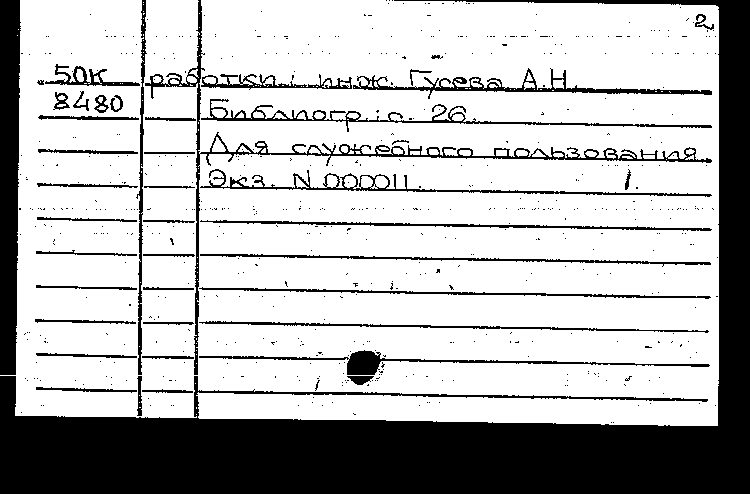 2
50К работки; инж. Гусева А.Н.
8480 Библиогр.: с. 26.
Для служебного пользования
Экз. N 000011. 1.